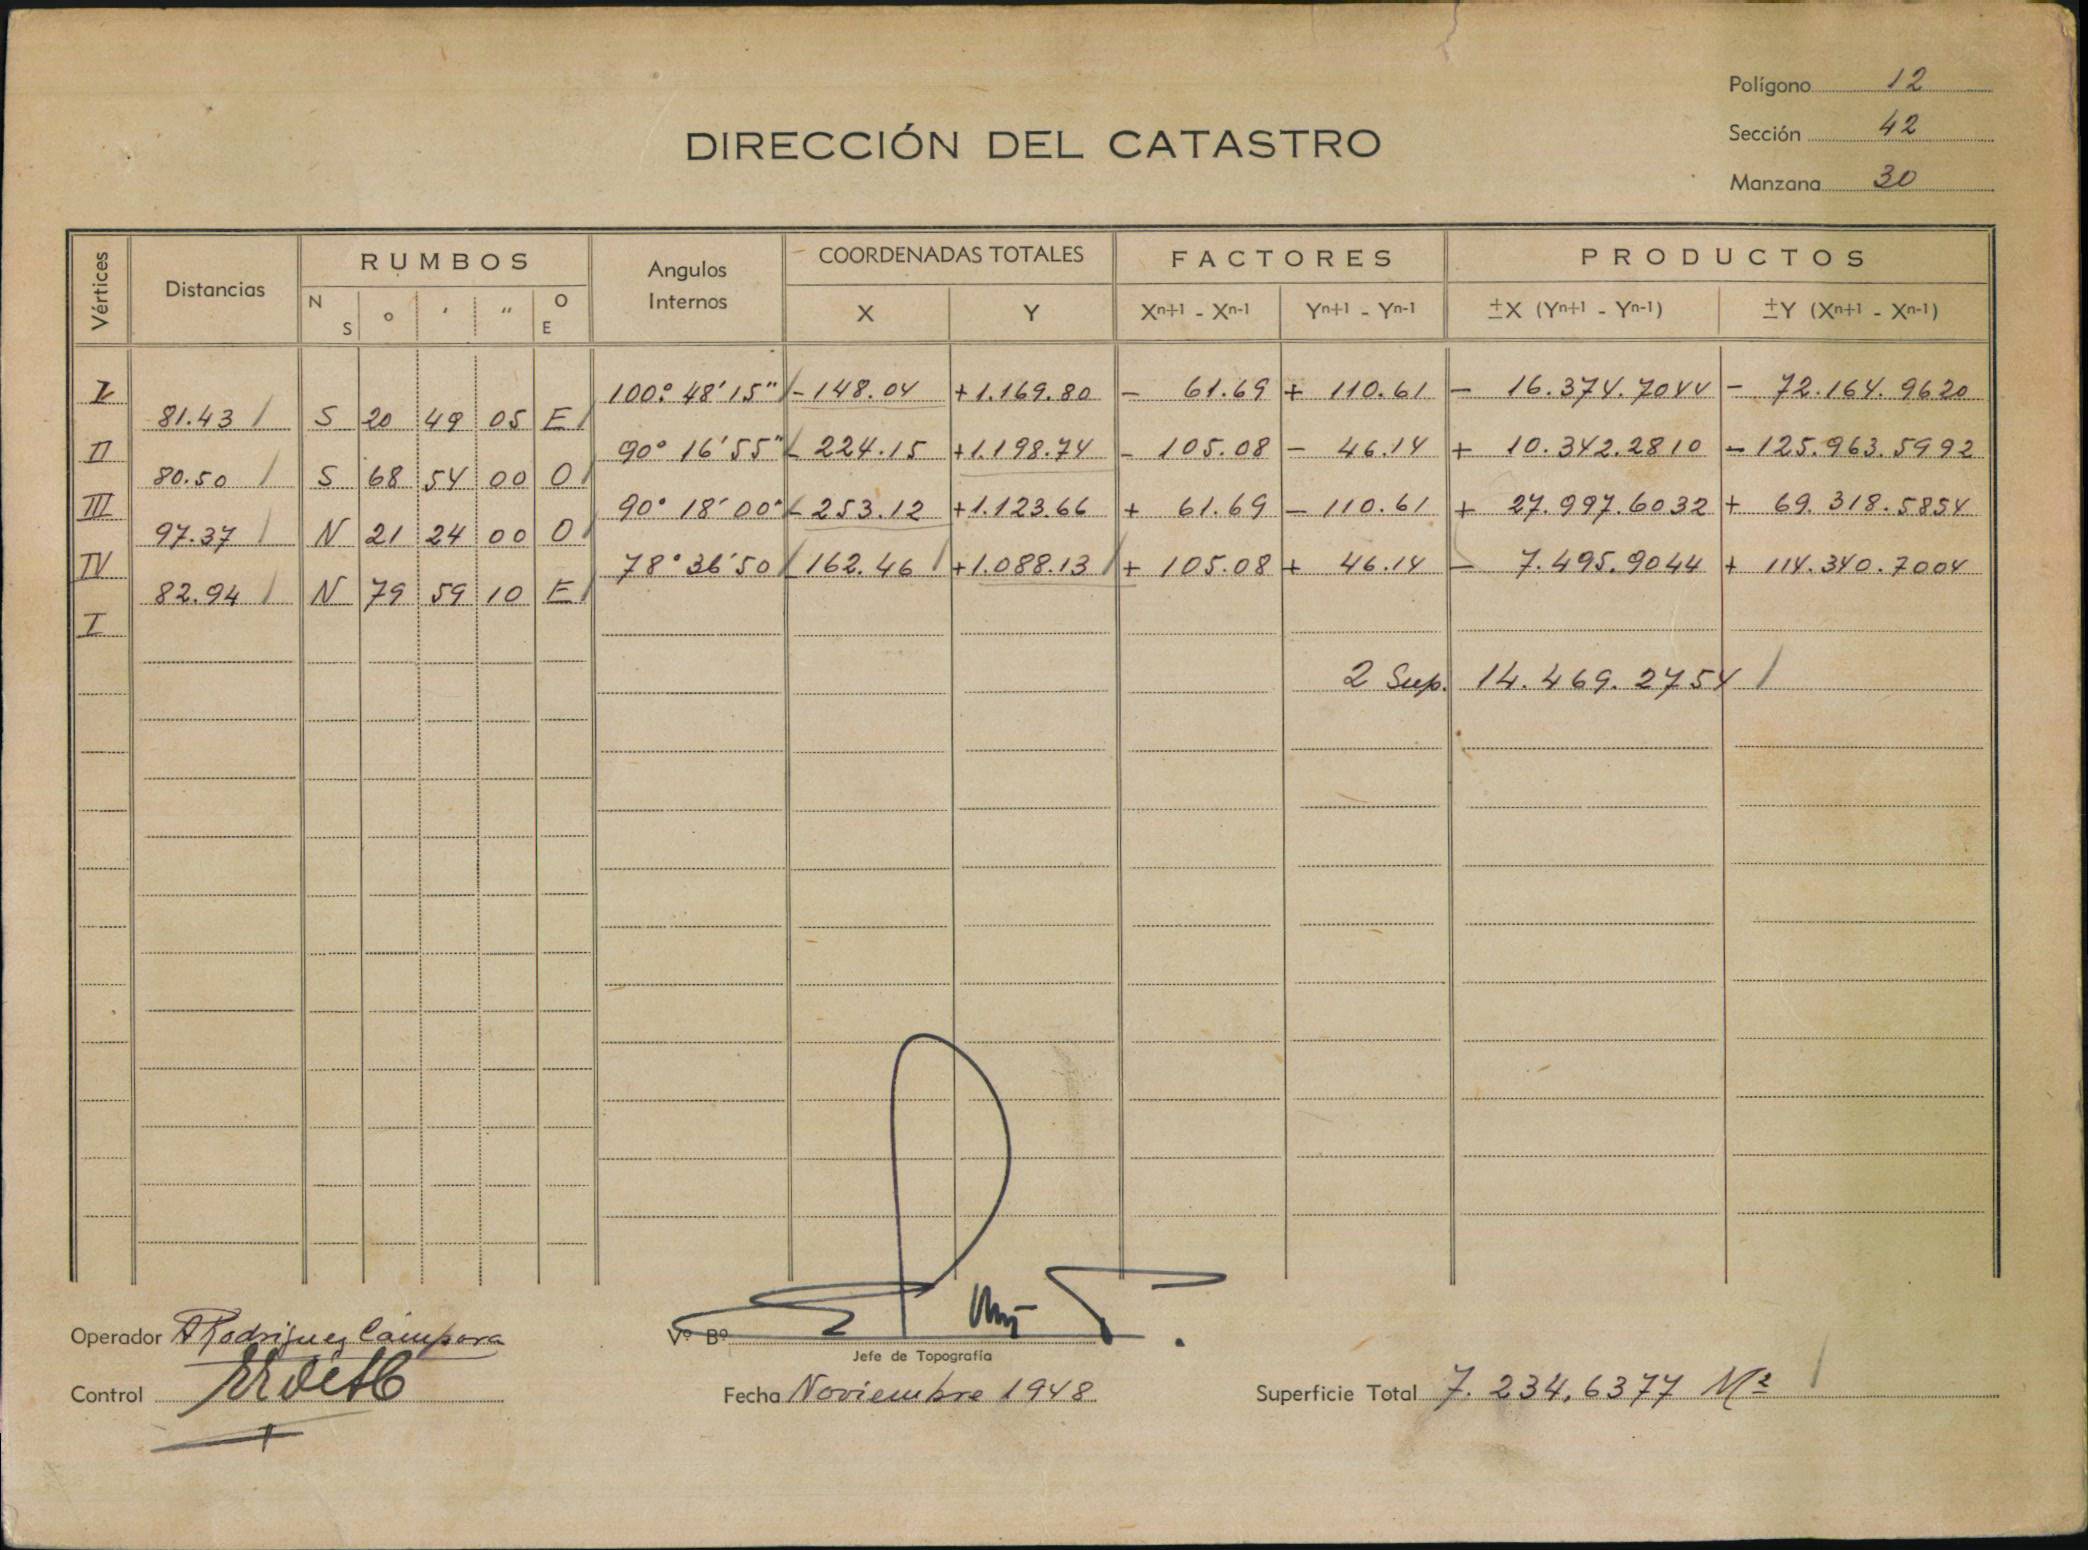 Polígono 12
DIRECCIÓN DEL CATASTRO
Sección 42
Manzana 30
Vértices Distancias RUMBOS Angulos Internos COORDENADAS TOTALES FACTORES PRODUCTOS
N S o ′ ″ O E X Y Xn+1 - Xn-1 Yn+1 - Yn-1 ±X (Yn+1 - Yn-1) ±Y (Xn+1 - Xn-1)
I 100° 48′ 15″ - 148.04 + 1.169.80 - 61.69 + 110.61 - 16.374.7044 - 72.164.9620
81.43 S 20 49 05 E
II 90° 16′ 55″ - 224.15 + 1.198.74 - 105.08 - 46.14 + 10.342.2810 - 125.963.5992
80.50 S 68 54 00 O
III 90° 18′ 00″ - 253.12 + 1.123.66 + 61.69 - 110.61 + 27.997.6032 + 69.318.5854
97.37 N 21 24 00 O
IV 78° 36′ 50 - 162.46 + 1.088.13 + 105.08 + 46.14 - 7.495.9044 + 114.340.7004
82.94 N 79 59 10 E
I
2 Sup. 14.469.2754
Operador A Rodriguez Cámpora Vº Bº
Jefe de Topografía
Control Fecha Noviembre 1948 Superficie Total 7.234,6377 M²